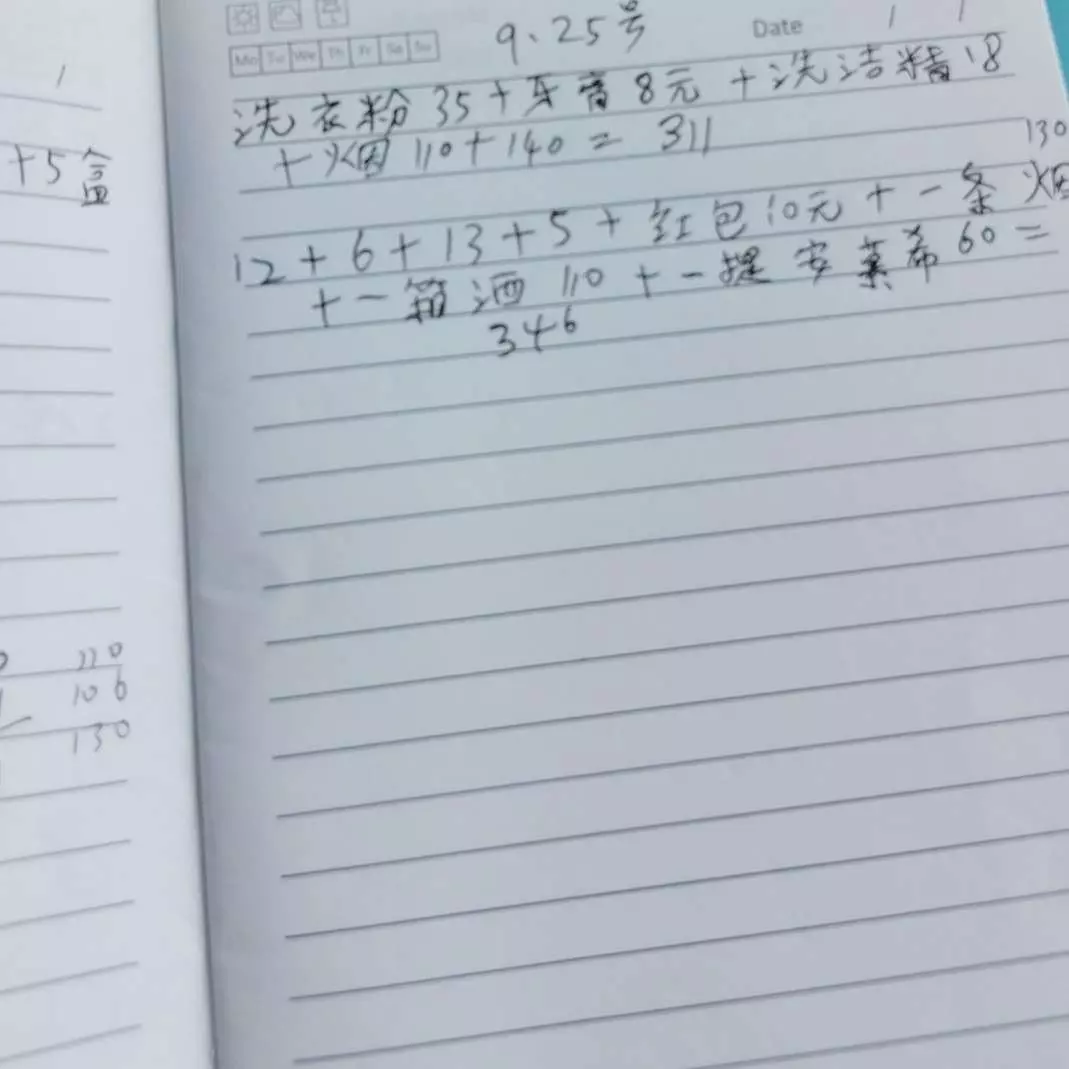 +5盒
110
106
130
9.25号
Date
Mo Tu We Th Fr Sa Su
洗衣粉 35+牙膏 8元 +洗洁精18
+烟 110+140= 311
130
12+6+13+5+红包10元+一条烟
+一箱酒 110+一提安慕希60=
346